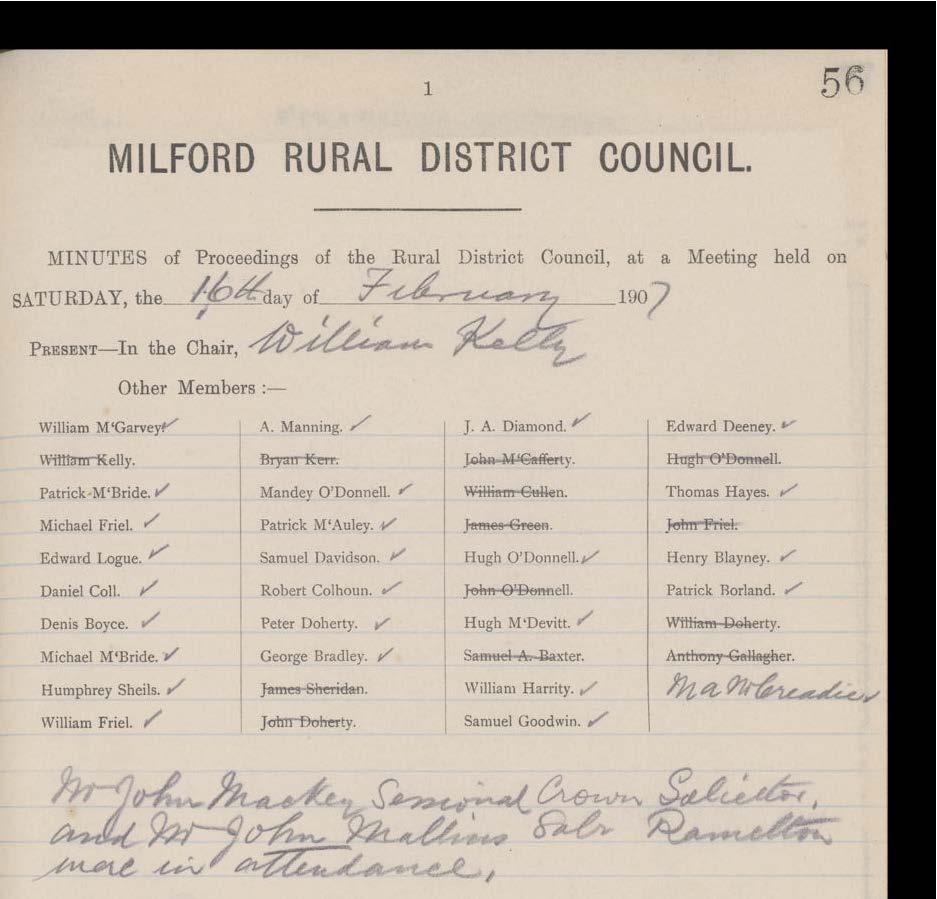 1
56
MILFORD RURAL DISTRICT COUNCIL.
MINUTES of Proceedings of the Rural District Council, at a Meeting held on
SATURDAY, the 16th day of February 1907
PRESENT—In the Chair, William Kelly
Other Members :—
William M‘Garvey
William Kelly.
Patrick M‘Bride.
Michael Friel.
Edward Logue.
Daniel Coll.
Denis Boyce.
Michael M‘Bride.
Humphrey Sheils.
William Friel.
A. Manning.
Bryan Kerr.
Mandey O’Donnell.
Patrick M‘Auley.
Samuel Davidson.
Robert Colhoun.
Peter Doherty.
George Bradley.
James Sheridan.
John Doherty.
J. A. Diamond.
John M‘Cafferty.
William Cullen.
James Green.
Hugh O’Donnell.
John O’Donnell.
Hugh M‘Devitt.
Samuel A. Baxter.
William Harrity.
Samuel Goodwin.
Edward Deeney.
Hugh O’Donnell.
Thomas Hayes.
John Friel.
Henry Blayney.
Patrick Borland.
William Doherty.
Anthony Gallagher.
M a McCreadie
Mr John Mackey Sessional Crown Solicitor,
and Mr John Mallins Solr Ramelton
were in attendance.